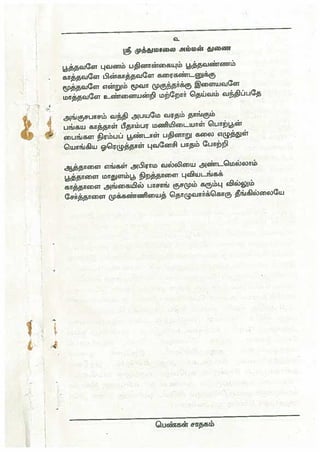 உ
ஸ்ரீ முத்துமாலை அம்மன் துணை
பூத்தவளே புவனம் பதினான்கையும் பூத்தவண்ணம்
காத்தவளே பின்காத்தவளே கறைகண்டனுக்கு
மூத்தவளே என்றும் மூவா முகுந்தர்க்கு இளையவளே
மாத்தவளே உன்னையன்றி மற்றோர் தெய்வம் வந்திப்பதே
அங்குசபாசம் வந்தி அபயமே வரதம் தாங்கும்
பங்கய காத்தாள் பீதாம்பர மணியிடையாள் பொற்பூன்
பைங்கள நிரம்பப் பூண்டாள் பதினாறு கலை எழுத்துள்
யொங்கிய ஒரெழுத்தாள் புவனேசி பாதம் போற்றி
ஆத்தாளை எங்கள் அபிராம வல்லியை அண்டமெல்லாம்
பூத்தாளை மாதுளம்பூ நிறத்தாளை புவியடங்கக்
காத்தாளை அங்கையில் பாசாங் குசமும் கரும்பு வில்லும்
சேர்த்தாளை முக்கண்ணியைத் தொழுவார்க்கொரு தீங்கில்லையே
பெண்கள் சாதகம்